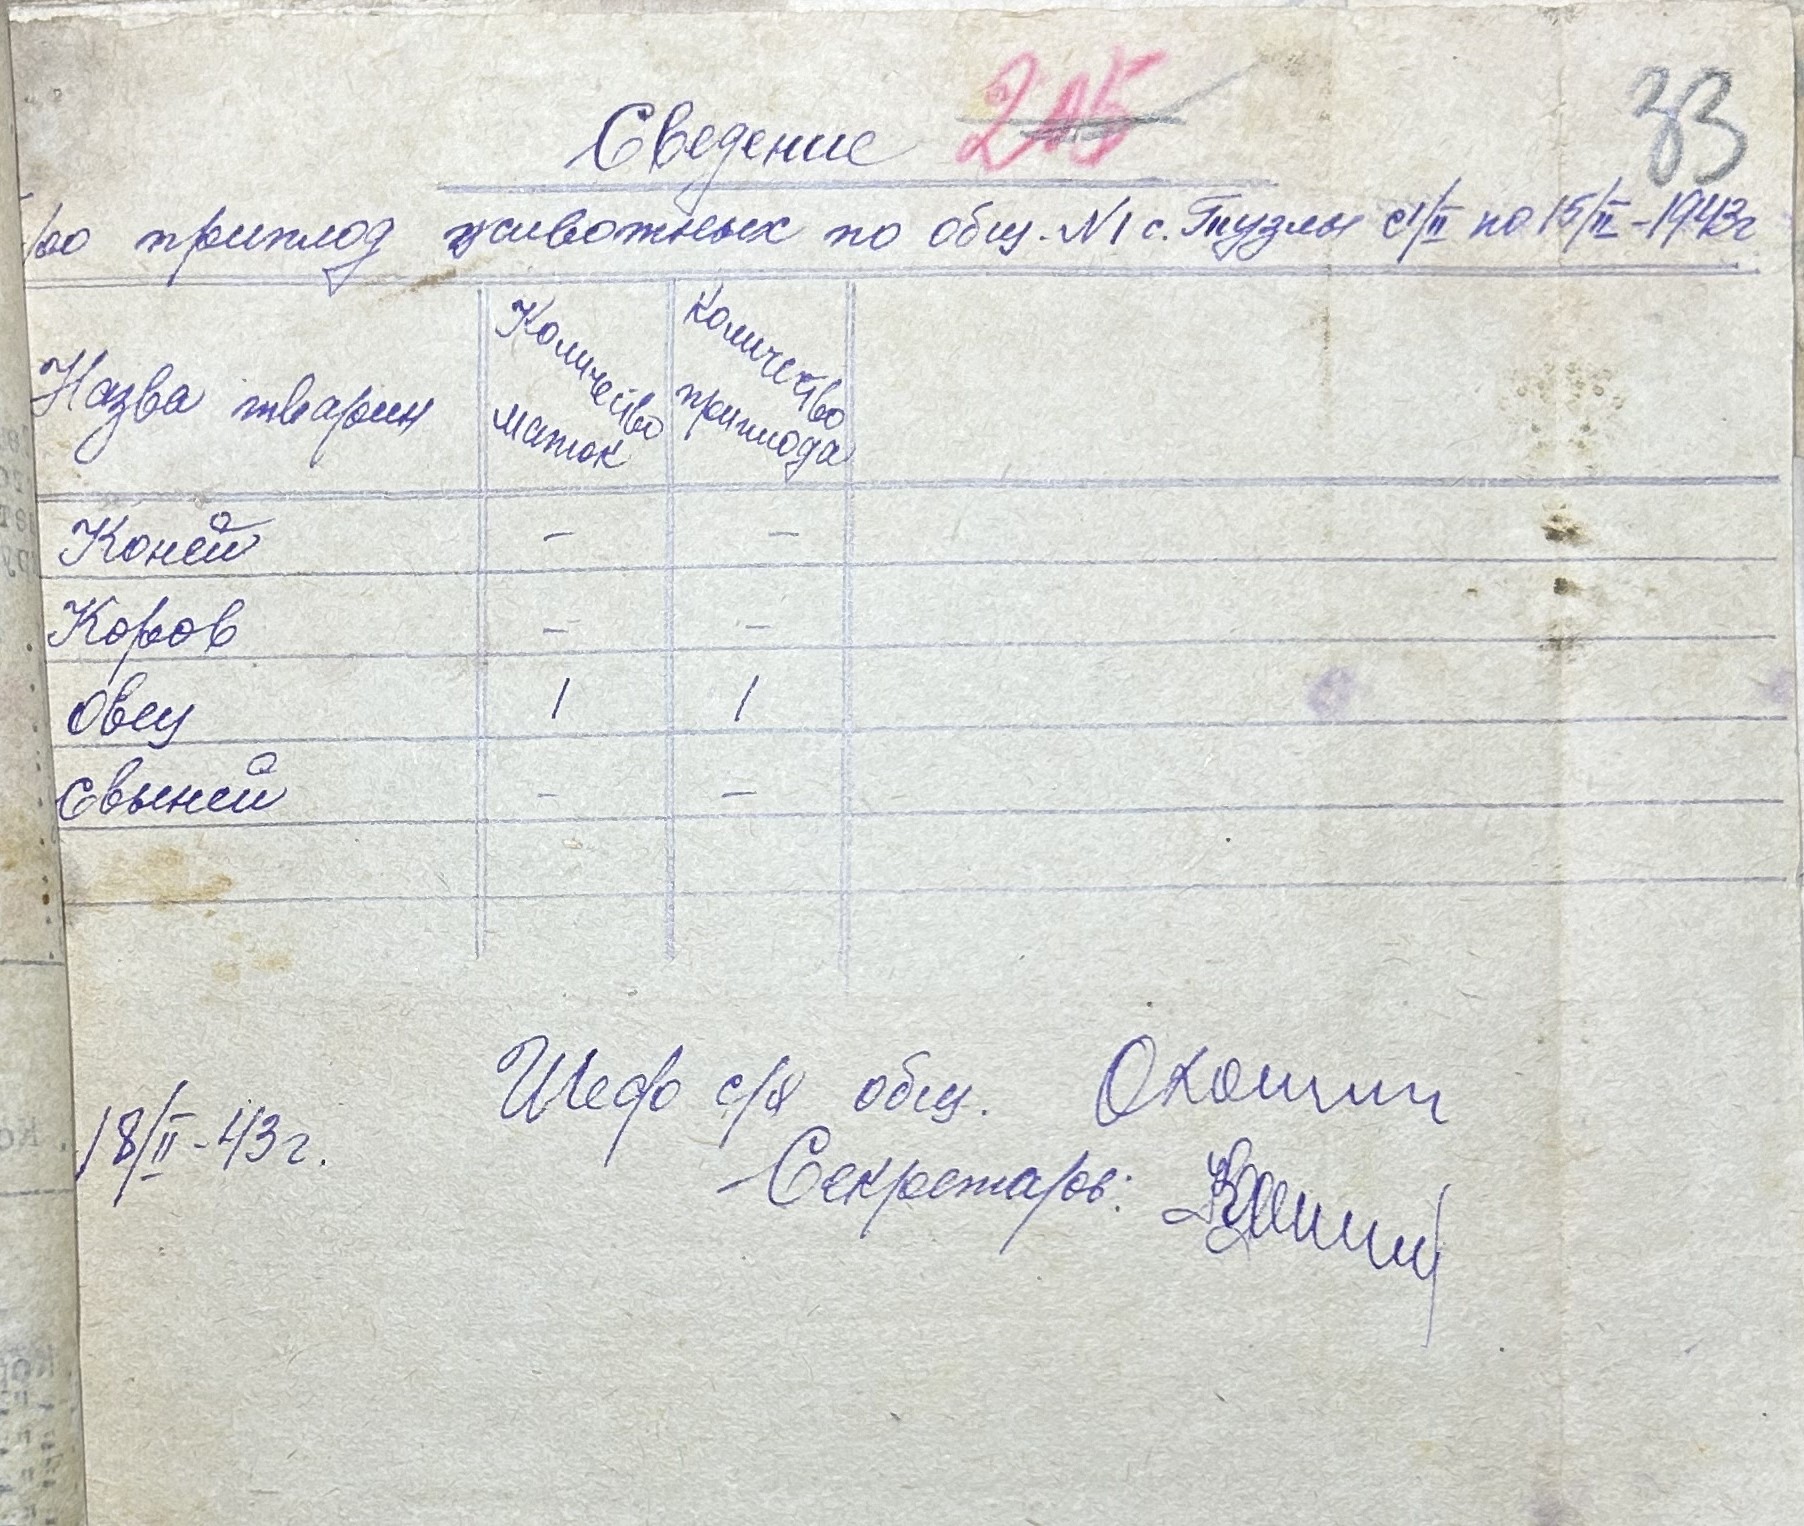 Сведение 205 33
про приплод животных по общ. №1 с. Тузлы с 1/II по 15/II-1943г
Назва тварин Количество маток Количество приплода
Коней - -
Коров - -
Овец 1 1
Свыней - -
Шеф с/х общ.
18/II-43г.
Секретарь: